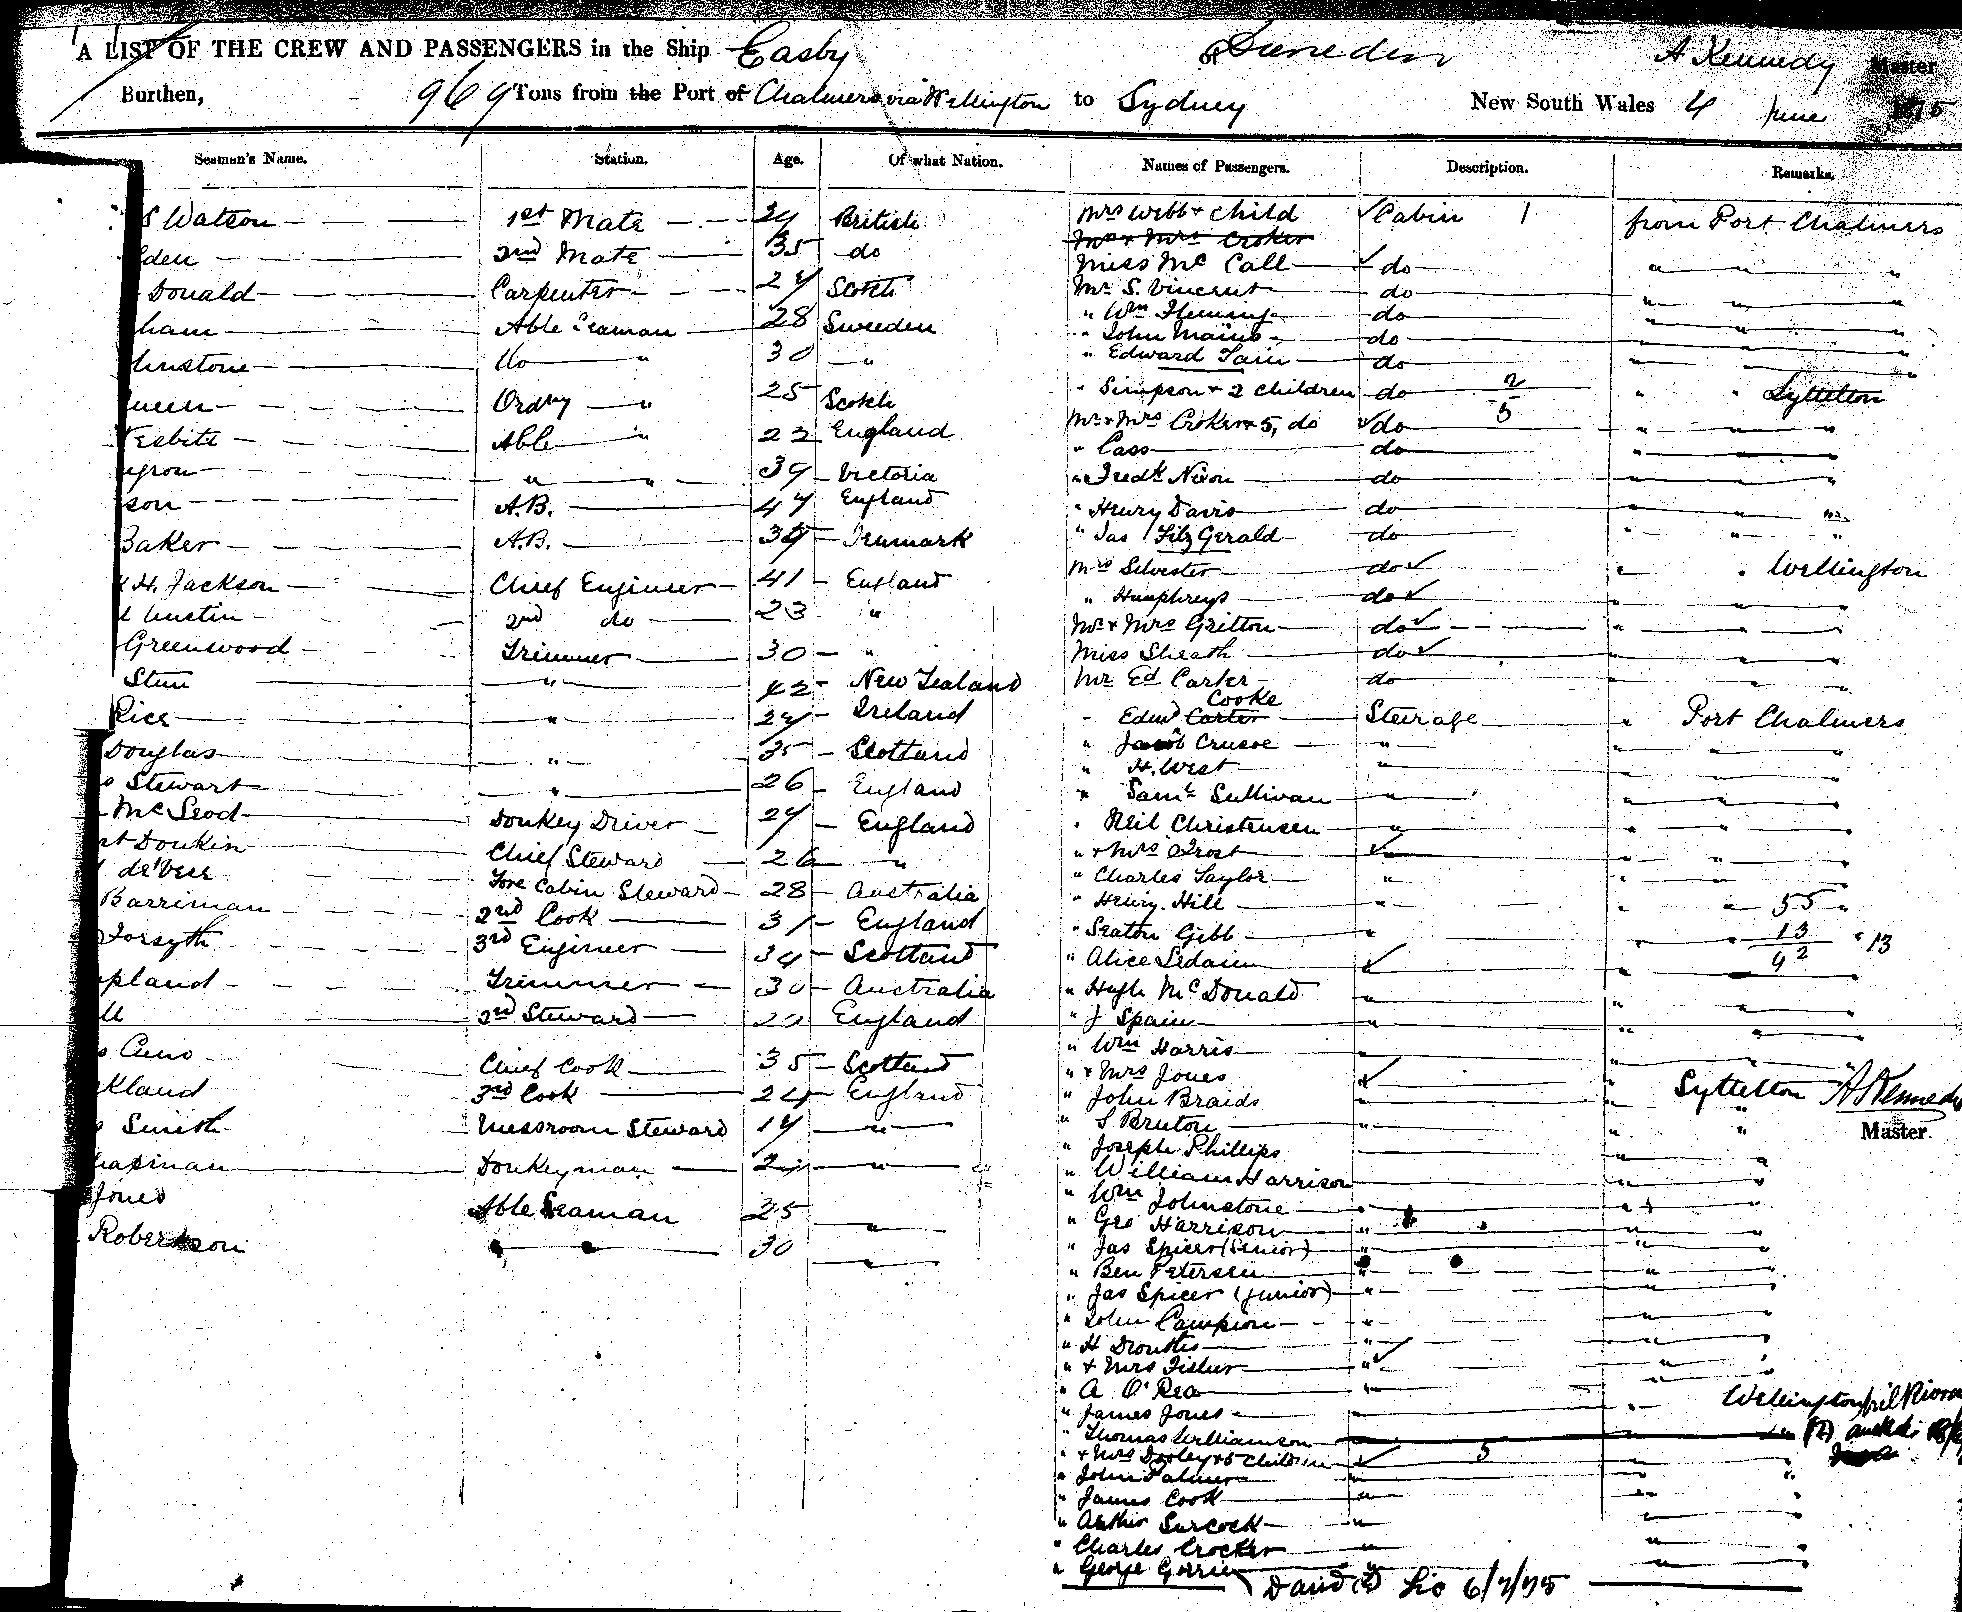 A LIST OF THE CREW AND PASSENGERS in the Ship Easby of Dunedin A Kennedy Master
Burthen, 969 Tons from the Port of Chalmers via Wellington to Sydney New South Wales 4 June 1875
Seaman's Name. Station. Age. Of what Nation. Names of Passengers. Description. Remarks.
S Watson 1st Mate British
den 2nd Mate 35 do
Donald Carpenter Scotch
ham Able Seaman 28 Sweden
hnstone do " 30 "
ueen Ordry " 25 Scotch
Nesbitt Able " 23 England
" " 39 Victoria
son A.B. England
Baker A.B. Denmark
H. Jackson Chief Engineer 41 England
Austin 2nd do 23 "
Greenwood Trimmer 30 "
" 42 New Zealand
Rice " Ireland
Douglas " 35 Scotland
Stewart " 26 England
McLeod Donkey Driver England
rt Donkin Chief Steward 26 "
de Veer Fore Cabin Steward 28 Australia
Barriman 2nd Cook 31 England
Forsyth 3rd Engineer 34 Scotland
pland Trimmer 30 Australia
ll 3rd Steward England
Chief Cook 35 Scotland
kland 3rd Cook 24 England
Smith Messroom Steward "
hapman Donkeyman "
Jones Able Seaman 25 "
Robertson " " 30 "
Mrs Webb + child Cabin 1 from Port Chalmers
Mr + Mrs Croker
Miss McCall do " " "
Mr S. Vincent do " " "
" Wm Fleming do " " "
" John Mains do " " "
" Edward Tain do " " "
" Simpson + 2 children do 2 " " Lyttelton
Mr + Mrs Croker + 5, do do 5 " " "
" Cass do " " "
" Fredk Nixon do " " "
" Henry Davis do " " "
" Jas FitzGerald do " " "
Mrs Silvester do " " Wellington
" Humphreys do " " "
Mr + Mrs Gritton do " " "
Miss Sheath do " " "
Mr Ed Carter do " " "
Cooke
" Edwd Carter Steerage " Port Chalmers
" Jacob Crusoe " " " "
" H. West " " " "
" Saml Sullivan " " " "
" Neil Christensen " " " "
" + Mrs Frost " " " "
" Charles Taylor " " " "
" Henry Hill " " " 55 "
" Seaton Gibb " " " 13 " 13
" Alice Sedain " " 92
" Hugh McDonald " " " "
" J Spain " " " "
" Wm Harris " " " "
" + Mrs Jones " " Lyttelton A Kennedy
" John Braids " " " Master
" S Bruton " " "
" Joseph Phillips " "
" William Harrison " "
" Wm Johnstone " " "
" Geo Harrison " " "
" Jas Spicer (Senior) " " "
" Ben Petersen " " "
" Jas Spicer (Junior) " " "
" John Campion " " "
" H " " "
" + Mrs Fisher " " "
" A O'Rea " "
" James Jones " " Wellington
" Thomas Williamson "
" + Mrs Dooley + 5 children " 5 " "
" John Palmer " " "
" James Cook " " "
" Arthur Surcock " " "
" Charles Crocker " " "
" George Gorrie " " "
David 6/7/75